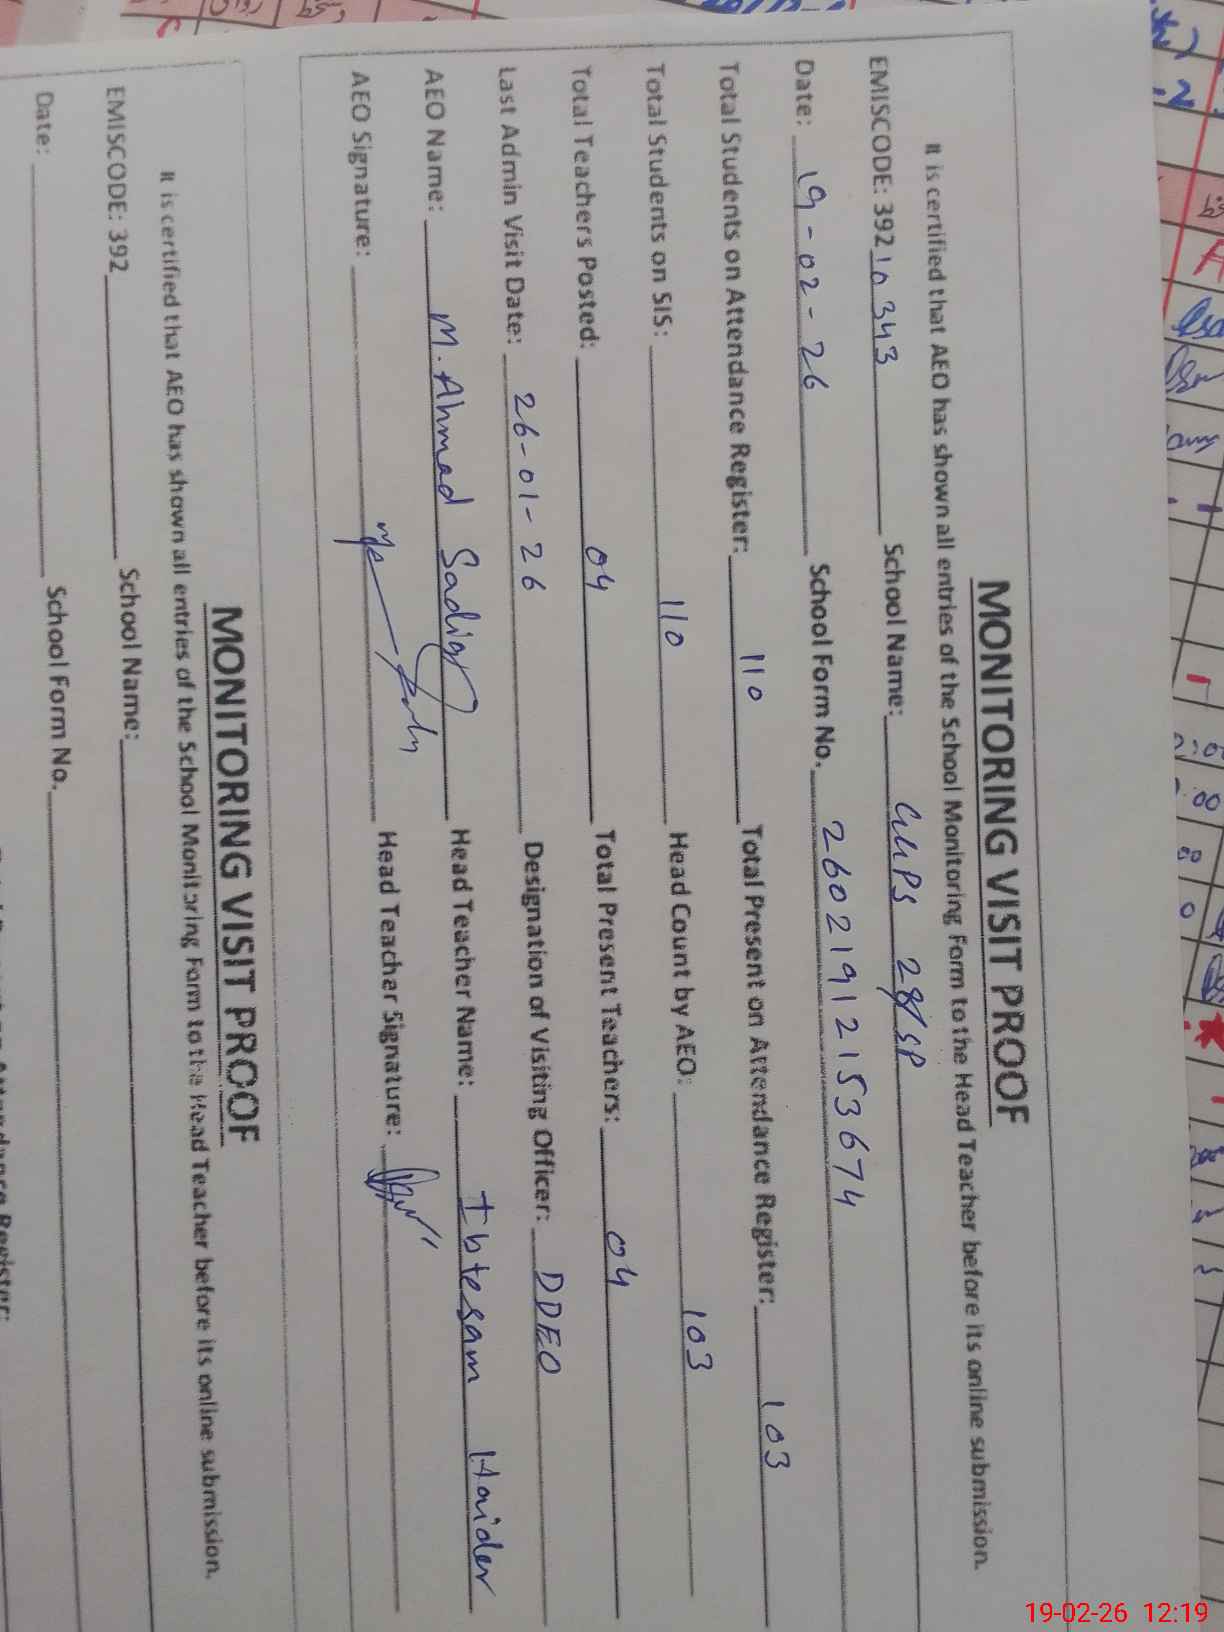 MONITORING VISIT PROOF
It is certified that AEO has shown all entries of the School Monitoring Form to the Head Teacher before its online submission.
EMISCODE: 39210343 School Name: GMPS 28/SP
Date: 19-02-26 School Form No. 26021912153674
Total Students on Attendance Register: 110 Total Present on Attendance Register: 103
Total Students on SIS: 110 Head Count by AEO: 103
Total Teachers Posted: 04 Total Present Teachers: 04
Last Admin Visit Date: 26-01-26 Designation of Visiting Officer: DDEO
AEO Name: M. Ahmad Sadiq Head Teacher Name: Ibtesam Haider
AEO Signature: Head Teacher Signature:
MONITORING VISIT PROOF
It is certified that AEO has shown all entries of the School Monitoring Form to the Head Teacher before its online submission.
EMISCODE: 392 School Name:
Date: School Form No.
19-02-26 12:19